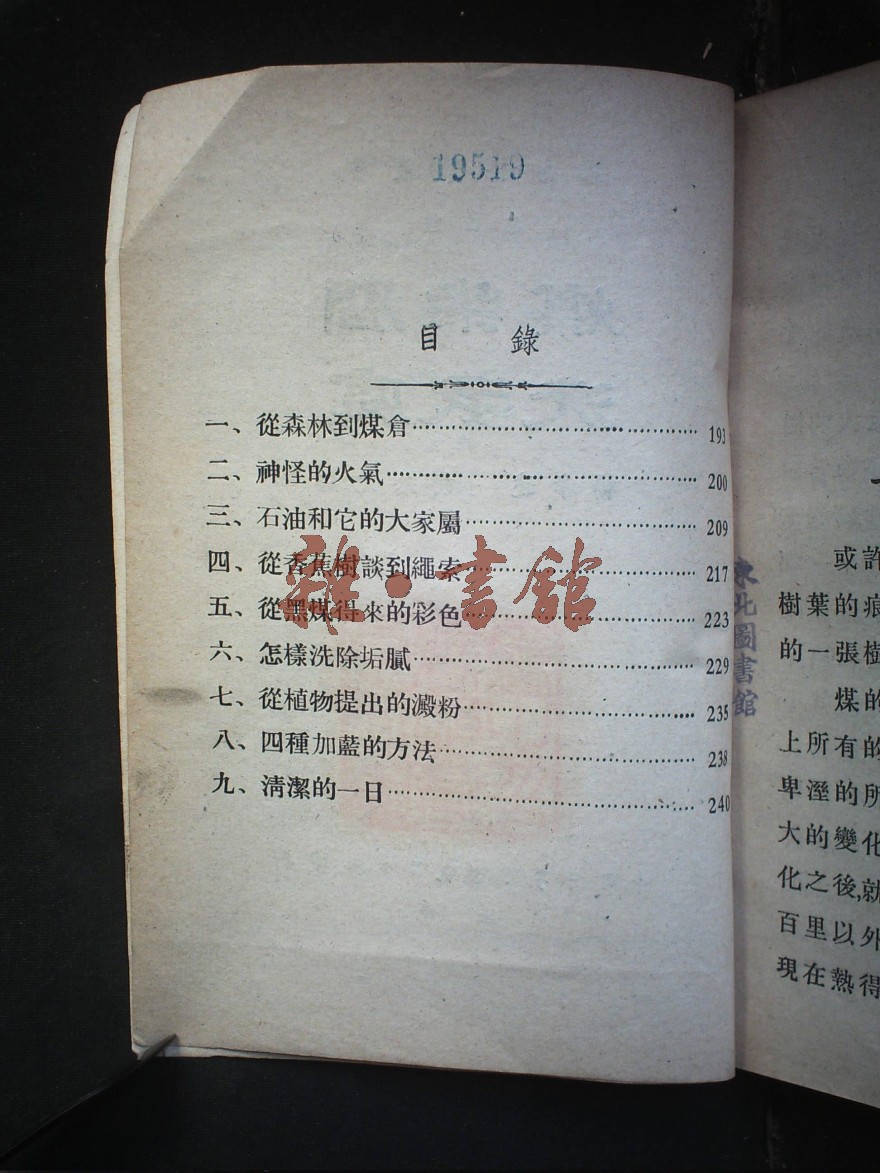 19519
目 錄
一、從森林到煤倉 193
二、神怪的火氣 200
三、石油和它的大家屬 209
四、從香蕉樹談到繩索 217
五、從黑煤得來的彩色 223
六、怎樣洗除垢膩 229
七、從植物提出的澱粉 235
八、四種加藍的方法 238
九、清潔的一日 240
雜·書館
東北圖書館
或許
樹葉的痕
的一張樹
煤的
上所有的
卑溼的所
大的變化
化之後,就
百里以外
現在熱得